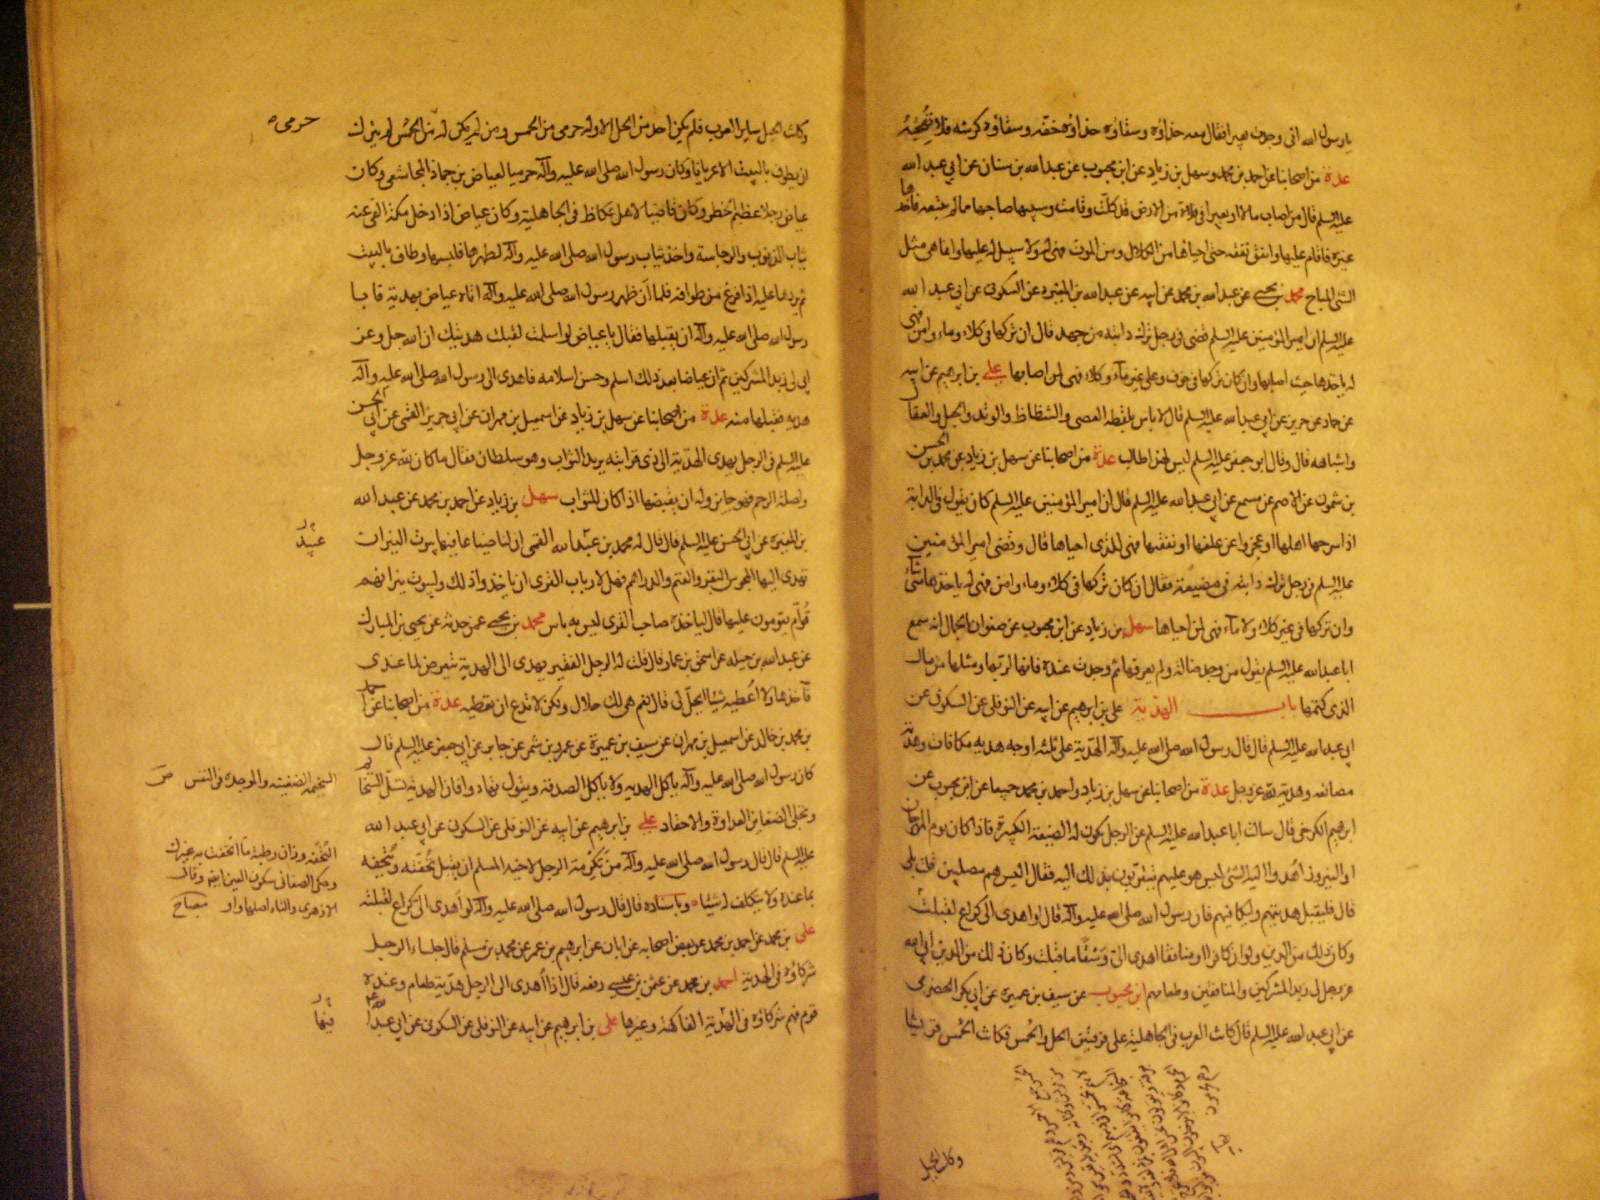 يا رسول الله اني وجدت بعيرا فقال معه حذاؤه وسقاؤه حذاؤه خفه وسقاؤه كرشه فلا تهجه
عدة من اصحابنا عن احمد بن محمد وسهل بن زياد عن ابن محبوب عن عبد الله بن سنان عن ابي عبد الله
عليه السلم قال من اصاب مالا او بعيرا في فلاة من الارض قد كلت وقامت وسيبها صاحبها مما لم يتبعه فاخذها
غيره فاقام عليها وانفق نفقه حتى احياها من الكلال ومن الموت فهي له ولا سبيل له عليها وانما هي مثل
الشئ المباح محمد بن يحيى عن عبد الله بن محمد عن ابيه عن عبد الله بن المغيرة عن السكوني عن ابي عبد الله
عليه السلم ان امير المؤمنين عليه السلم قضى في رجل ترك دابته من جهد قال ان تركها في كلاء وماء وامن فهي
له ياخذها حيث اصابها وان كان تركها في خوف وعلى غير ماء وكلاء فهي لمن اصابها علي بن ابرهيم عن ابيه
عن حماد عن حريز عن ابي عبد الله عليه السلم قال لا باس بلقطه العصى والشظاظ والوتد والحبل والعقال
واشباهه قال وقال ابو جعفر عليه السلم ليس لهذا طالب عدة من اصحابنا عن سهل بن زياد عن محمد بن الحسن
بن شمون عن الاصم عن مسمع عن ابي عبد الله عليه السلم قال ان امير المؤمنين عليه السلم كان يقول في الدابة
اذا سرحها اهلها او عجزوا عن علفها او نفقتها فهي للذي احياها قال وقضى امير المؤمنين
عليه السلم في رجل ترك دابته في مضيعة فقال ان كان تركها في كلاء وماء وامن فهي له ياخذها متى شاء
وان تركها في غير كلاء ولا ماء فهي لمن احياها سهل بن زياد عن ابن محبوب عن صفوان الجمال انه سمع
ابا عبد الله عليه السلم يقول من وجد ضالة ولم يعرفها ثم وجدت عنده فانها لربها ومثلها من مال
الذي كتمها باب الهدية علي بن ابرهيم عن ابيه عن النوفلي عن السكوني عن
ابي عبد الله عليه السلم قال قال رسول الله صلى الله عليه وآله الهدية على ثلثه اوجه هديه مكافات وهدية
مصانعه وهدية لله عز وجل عدة من اصحابنا عن سهل بن زياد واحمد بن محمد جميعا عن ابن محبوب عن
ابرهيم الكرخي قال سالت ابا عبد الله عليه السلم عن الرجل يكون له الضيعة الكبيرة فاذا كان يوم المهرجان
او النيروز اهدوا اليه الشئ ليس هو عليهم يتقربون بذلك اليه فقال اليس هم مصلين قلت بلى
قال فليقبل هديتهم وليكافيهم فان رسول الله صلى الله عليه وآله قال لو اهدى الي كراع لقبلت
وكان ذلك من الدين ولو ان كافرا او منافقا اهدى الي وسقا ما قبلت وكان ذلك من الدين ابى الله
عز وجل لي زبد المشركين والمنافقين وطعامهم ابن محبوب عن سيف بن عميره عن ابي بكر الحضرمي
عن ابي عبد الله عليه السلم قال كانت العرب في الجاهلية على فرقتين الحل والحمس فكانت الحمس قريشا
وكان الحل
وكانت الحل سائر العرب فلم يكن احد من الحل الا وله حرمي من الحمس ومن لم يكن له حرمي من الحمس لم يترك
حرمي
ان يطوف بالبيت الا عريانا وكان رسول الله صلى الله عليه وآله حرميا لعياض بن حمار المجاشعي وكان
عياض رجلا عظيم الخطر وكان قاضيا لاهل عكاظ في الجاهلية وكان عياض اذا دخل مكة القى عنه
ثياب الذنوب والرجاسة واخذ ثياب رسول الله صلى الله عليه وآله لطهرها فلبسها وطاف بالبيت
ثم يردها عليه اذا فرغ من طوافه فلما ان ظهر رسول الله صلى الله عليه وآله اتاه عياض بهدية فابى
رسول الله صلى الله عليه وآله ان يقبلها فقال يا عياض لو اسلمت لقبلت هديتك ان الله جل وعز
ابى لي زبد المشركين ثم ان عياضا بعد ذلك اسلم وحسن اسلامه فاهدى الى رسول الله صلى الله عليه وآله
هديه فقبلها منه عدة من اصحابنا عن سهل بن زياد عن اسمعيل بن مهران عن ابي جرير القمي عن ابي الحسن
عليه السلم في الرجل يهدي الهدية الى ذي قرابته يريد الثواب وهو سلطان فقال ما كان لله عز وجل
ولصلة الرحم فهو جائز وله ان يقبضها اذا كان للثواب سهل بن زياد عن احمد بن محمد عن عبد الله
بن المغيرة عن ابي الحسن عليه السلم قال قال له محمد بن عبد الله القمي ان لنا ضياعا فيها بيوت النيرات
عبيد
تهدي اليها المجوس البقر والغنم والدراهم فهل لارباب القرى ان ياخذوا ذلك ولبيوت نيرانهم
قوام يقومون عليها قال لياخذه صاحب القرى ليس به باس محمد بن يحيى عمن حدثه عن يحيى بن المبارك
عن عبد الله بن جبله عن اسحق بن عمار قال قلت له الرجل الفقير يهدي الي الهدية يتعرض لما عندي
فآخذها ولا اعطيه شيئا ايحل لي قال نعم هي لك حلال ولكن لا تدع ان تعطيه عدة من اصحابنا عن احمد
بن محمد بن خالد عن اسمعيل بن مهران عن سيف بن عميرة عن عمرو بن شمر عن جابر عن ابي جعفر عليه السلم قال
كان رسول الله صلى الله عليه وآله ياكل الهديه ولا ياكل الصدقه ويقول تهادوا فان الهديه تسل السخائم
السخيمه الضغينه والموجدة في النفس ص
وتجلي الضغائن العداوة والاحقاد علي بن ابرهيم عن ابيه عن النوفلي عن السكوني عن ابي عبد الله
عليه السلم قال قال رسول الله صلى الله عليه وآله من تكرمة الرجل لاخيه المسلم ان يقبل تحفته ويتحفه
التحفه وزان رطبة ما اتحفت به غيرك
وحكى الصغاني سكون العين ايضا وقال
الازهري والتاء اصلها واو مصباح
بما عنده ولا يتكلف له شيئا وباسناده قال قال رسول الله صلى الله عليه وآله لو اهدى الي كراع لقبلته
علي بن محمد عن احمد بن محمد عن بعض اصحابه عن ابان عن ابرهيم بن عمر عن محمد بن مسلم قال جلساء الرجل
شركاؤه في الهدية احمد بن محمد عن عثمن بن عيسى رفعه قال اذا اهدى الى الرجل هدية طعام وعنده
قوم فهم شركاؤه في الهدية الفاكهة وغيرها علي بن ابرهيم عن ابيه عن النوفلي عن السكوني عن ابي عبد الله
فيها